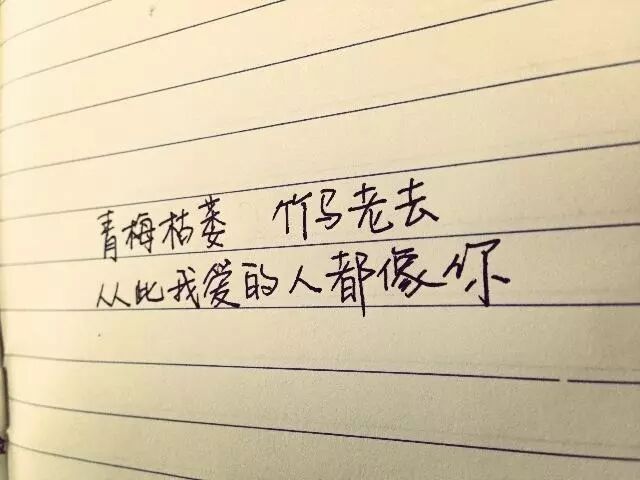 青梅枯萎 竹马老去
从此我爱的人都像你